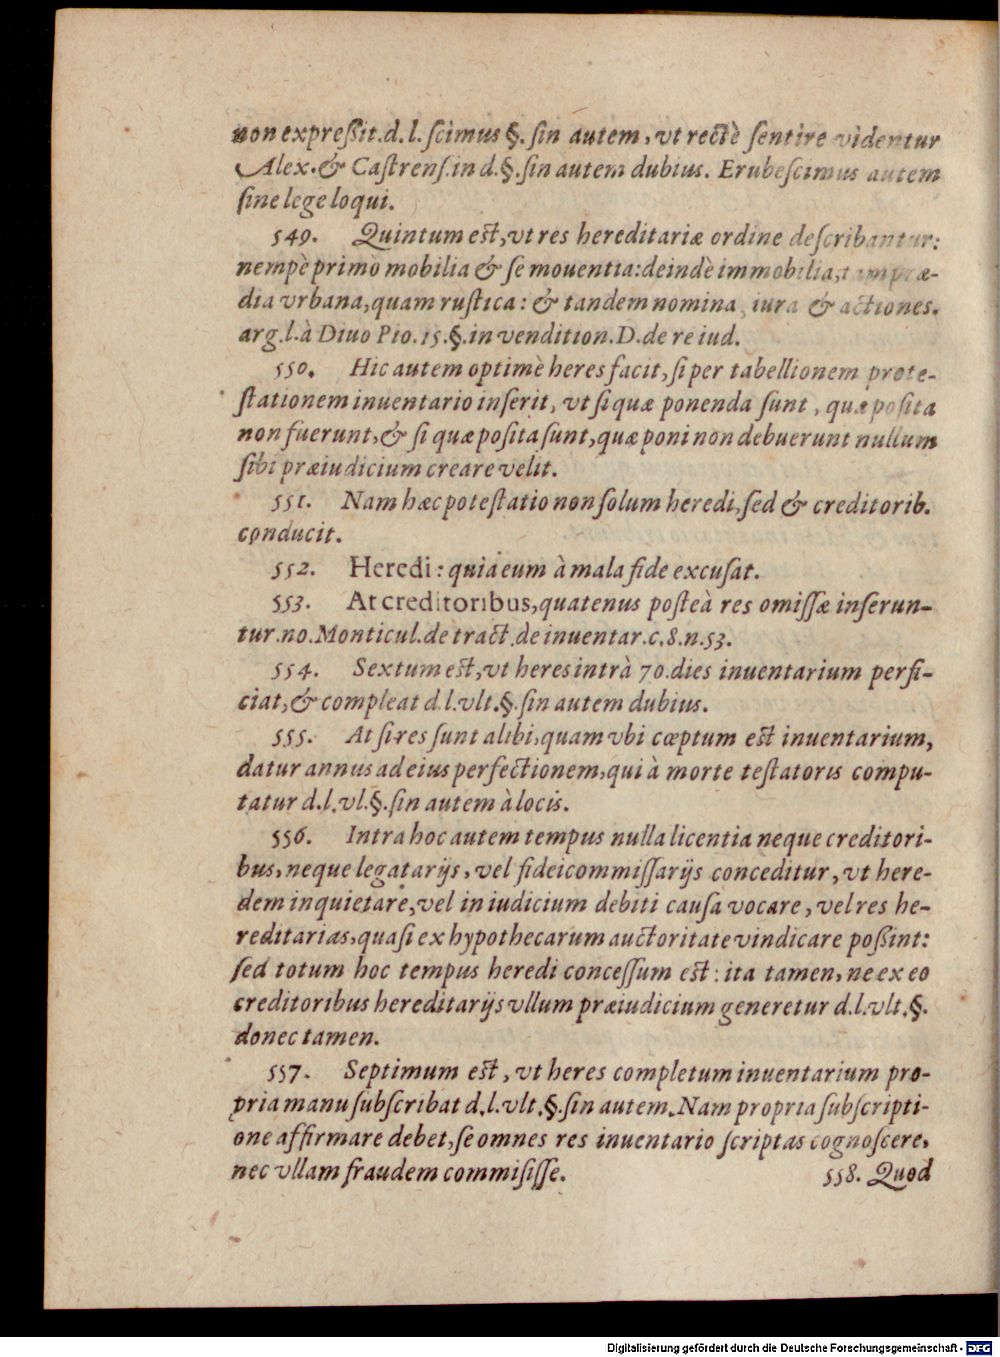 non expreßit.d.l.ſcimus §. ſin autem, vt rectè ſentire videntur
Alex.& Caſtrenſ.in d.§.ſin autem dubius. Erubeſcimus autem
ſine lege loqui.
549. Quintum eſt,vt res hereditariæ ordine deſcribantur:
nempè primò mobilia & ſe mouentia:deindè immobilia,tam præ-
dia vrbana,quam ruſtica: & tandem nomina, iura & actiones.
arg.l.à Diuo Pio.15.§.in vendition.D.de re iud.
550. Hic autem optimè heres facit, ſi per tabellionem prote-
ſtationem inuentario inſerit, vt ſi quæ ponenda ſunt, quæ poſita
non fuerunt,& ſi quæ poſita ſunt,quæ poni non debuerunt nullum
ſibi præiudicium creare velit.
551. Nam hæc poteſtatio non ſolum heredi,ſed & creditorib.
conducit.
552. Heredi: quia eum à mala fide excuſat.
553. At creditoribus,quatenus poſteà res omiſſæ inſerun-
tur.no.Monticul.de tract.de inuentar.c.8.n.53.
554. Sextum eſt,vt heres intrà 70.dies inuentarium perfi-
ciat,& compleat d.l.vlt.§.ſin autem dubius.
555. At ſi res ſunt alibi,quam vbi cœptum eſt inuentarium,
datur annus ad eius perfectionem,qui à morte teſtatoris compu-
tatur d.l.vl.§.ſin autem à locis.
556. Intra hoc autem tempus nulla licentia neque creditori-
bus,neque legatarijs, vel fideicommiſſarijs conceditur, vt here-
dem inquietare,vel in iudicium debiti cauſa vocare, vel res he-
reditarias,quaſi ex hypothecarum auctoritate vindicare poßint:
ſed totum hoc tempus heredi conceſſum eſt: ita tamen, ne ex eo
creditoribus hereditarijs vllum præiudicium generetur d.l.vlt.§.
donec tamen.
557. Septimum eſt, vt heres completum inuentarium pro-
pria manu ſubſcribat d.l.vlt.§.ſin autem.Nam propria ſubſcripti-
one affirmare debet,ſe omnes res inuentario ſcriptas cognoſcere,
nec vllam fraudem commiſiſſe. 558. Quod
Digitalisierung gefördert durch die Deutsche Forschungsgemeinschaft - DFG